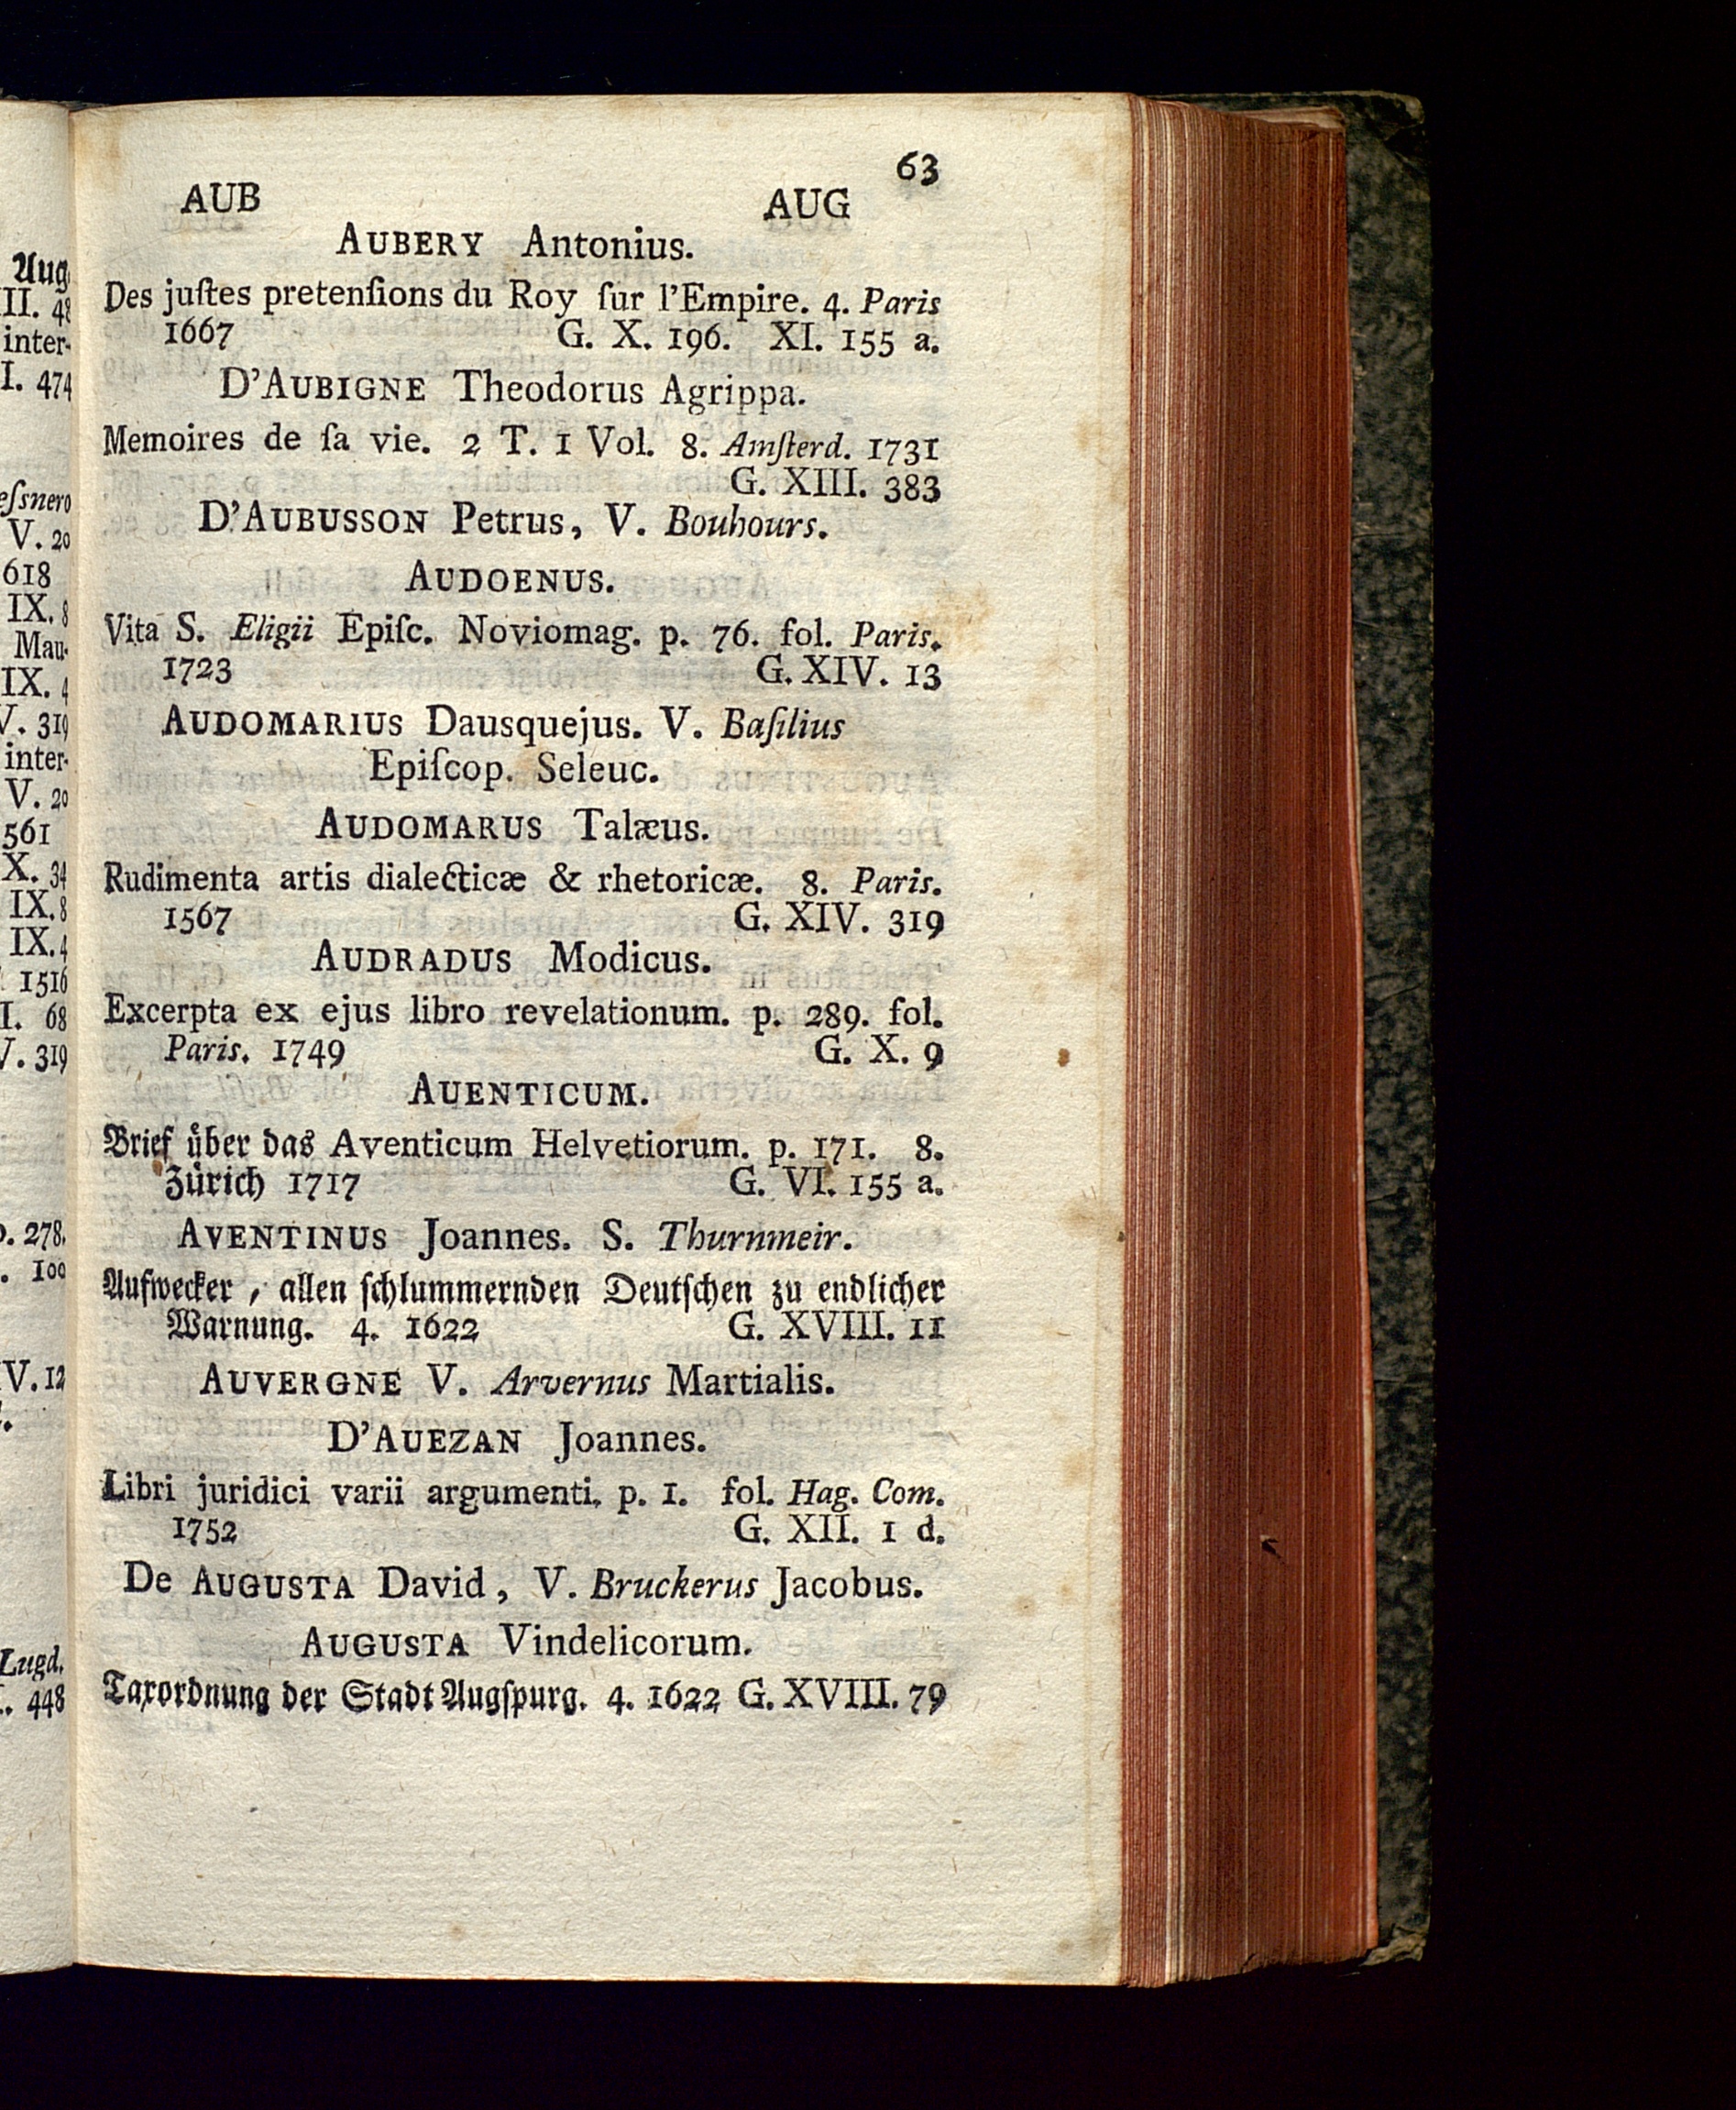 Aug.
II. 48
inter-
I. 474
essnero
V. 20
618
IX. 8
Mau-
IX. 4
V. 319
inter-
V. 20
561
X. 34
IX. 8
IX. 4
1516
I. 68
V. 319
p. 278.
. 100
IV. 12
Lugd.
. 448
63
AUB AUG
AUBERY Antonius.
Des juſtes pretenſions du Roy ſur l'Empire. 4. Paris
1667 G. X. 196. XI. 155 a.
D'AUBIGNE Theodorus Agrippa.
Memoires de ſa vie. 2 T. 1 Vol. 8. Amſterd. 1731
G. XIII. 383
D'AUBUSSON Petrus, V. Bouhours.
AUDOENUS.
Vita S. Eligii Epiſc. Noviomag. p. 76. fol. Paris.
1723 G. XIV. 13
AUDOMARIUS Dausquejus. V. Baſilius
Epiſcop. Seleuc.
AUDOMARUS Talæus.
Rudimenta artis dialecticæ & rhetoricæ. 8. Paris.
1567 G. XIV. 319
AUDRADUS Modicus.
Excerpta ex ejus libro revelationum. p. 289. fol.
Paris. 1749 G. X. 9
AUENTICUM.
Brief über das Aventicum Helvetiorum. p. 171. 8.
Zürich 1717 G. VI. 155 a.
AVENTINUS Joannes. S. Thurnmeir.
Aufwecker, allen ſchlummernden Deutſchen zu endlicher
Warnung. 4. 1622 G. XVIII. 11
AUVERGNE V. Arvernus Martialis.
D'AUEZAN Joannes.
Libri juridici varii argumenti. p. 1. fol. Hag. Com.
1752 G. XII. 1 d.
De AUGUSTA David, V. Bruckerus Jacobus.
AUGUSTA Vindelicorum.
Taxordnung der Stadt Augſpurg. 4. 1622 G. XVIII. 79